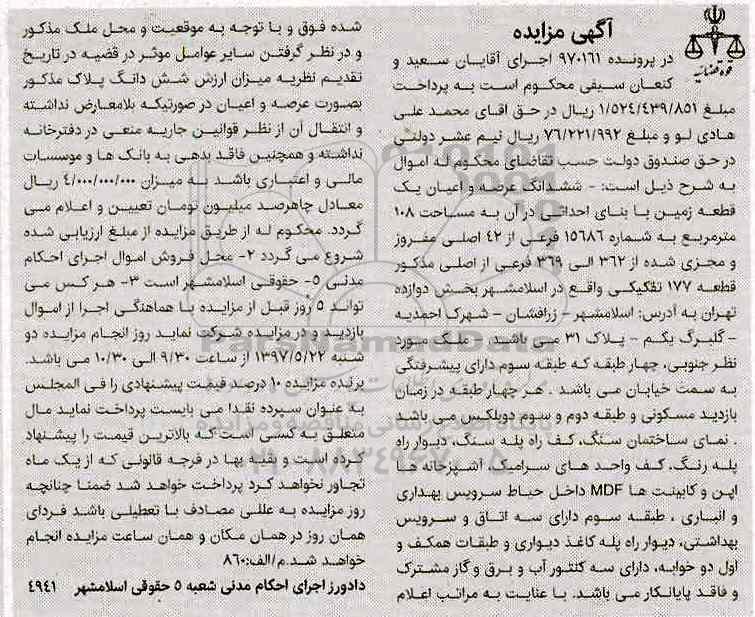 آگهی مزایده
قوه قضائیه
در پرونده ۹۷۰۱۶۱ اجرای آقایان سعید و
کنعان سیفی محکوم است به پرداخت
مبلغ ۱/۵۲۴/۴۳۹/۸۵۱ ریال در حق اقای محمد علی
هادی لو و مبلغ ۷۶/۲۲۱/۹۹۲ ریال نیم عشر دولتی
در حق صندوق دولت حسب تقاضای محکوم له اموال
به شرح ذیل است: - ششدانگ عرصه و اعیان یک
قطعه زمین با بنای احداثی در آن به مساحت ۱۰۸
مترمربع به شماره ۱۵۶۸۶ فرعی از ۴۲ اصلی مفروز
و مجزی شده از ۳۶۲ الی ۳۶۹ فرعی از اصلی مذکور
قطعه ۱۷۷ تفکیکی واقع در اسلامشهر بخش دوازده
تهران به آدرس: اسلامشهر - زرافشان - شهرک احمدیه
- گلبرگ یکم - پلاک ۳۱ می باشد . - ملک مورد
نظر جنوبی، چهار طبقه که طبقه سوم دارای پیشرفتگی
به سمت خیابان می باشد . هر چهار طبقه در زمان
بازدید مسکونی و طبقه دوم و سوم دوبلکس می باشد
. نمای ساختمان سنگ، کف راه پله سنگ، دیوار راه
پله رنگ، کف واحد های سرامیک، اشپزخانه ها
اپن و کابینت ها MDF داخل حیاط سرویس بهداری
و انباری ، طبقه سوم دارای سه اتاق و سرویس
بهداشتی، دیوار راه پله کاغذ دیواری و طبقات همکف و
اول دو خوابه، دارای سه کنتور آب و برق و گاز مشترک
و فاقد پایانکار می باشد. با عنایت به مراتب اعلام
شده فوق و با توجه به موقعیت و محل ملک مذکور
و در نظر گرفتن سایر عوامل موثر در قضیه در تاریخ
تقدیم نظریه میزان ارزش شش دانگ پلاک مذکور
بصورت عرصه و اعیان در صورتیکه بلامعارض نداشته
و انتقال آن از نظر قوانین جاریه منعی در دفترخانه
نداشته و همچنین فاقد بدهی به بانک ها و موسسات
مالی و اعتباری باشد به میزان ۴/۰۰۰/۰۰۰/۰۰۰ ریال
معادل چاهرصد میلیون تومان تعیین و اعلام می
گردد. محکوم له از طریق مزایده از مبلغ ارزیابی شده
شروع می گردد ۲- محل فروش اموال اجرای احکام
مدنی ۵- حقوقی اسلامشهر است ۳- هر کس می
تواند ۵ روز قبل از مزایده با هماهنگی اجرا از اموال
بازدید و در مزایده شرکت نماید روز انجام مزایده دو
شنبه ۱۳۹۷/۵/۲۲ از ساعت ۹/۳۰ الی ۱۰/۳۰ می باشد.
برنده مزایده ۱۰ درصد قیمت پیشنهادی را فی المجلس
به عنوان سپرده نقدا می بایست پرداخت نماید مال
متعلق به کسی است که بالاترین قیمت را پیشنهاد
کرده است و بقیه بها در فرجه قانونی که از یک ماه
تجاوز نخواهد کرد پرداخت خواهد شد ضمنا چنانچه
روز مزایده به عللی مصادف با تعطیلی باشد فردای
همان روز در همان مکان و همان ساعت مزایده انجام
خواهد شد.م/الف:۸۶۰
دادورز اجرای احکام مدنی شعبه ۵ حقوقی اسلامشهر ۴۹۴۱
ParsNamadData
۰۲۱-۸۸۳۴۹۶۷۰-۵